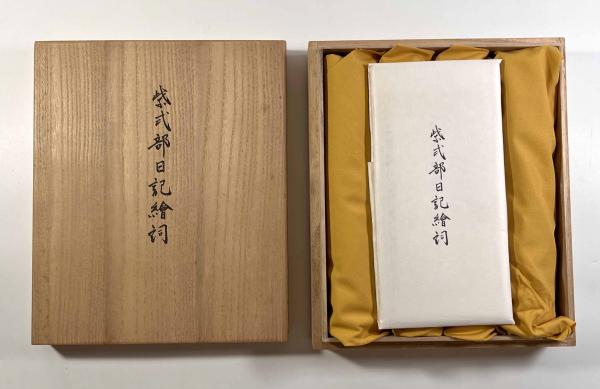 紫式部日記繪詞
紫式部日記繪詞